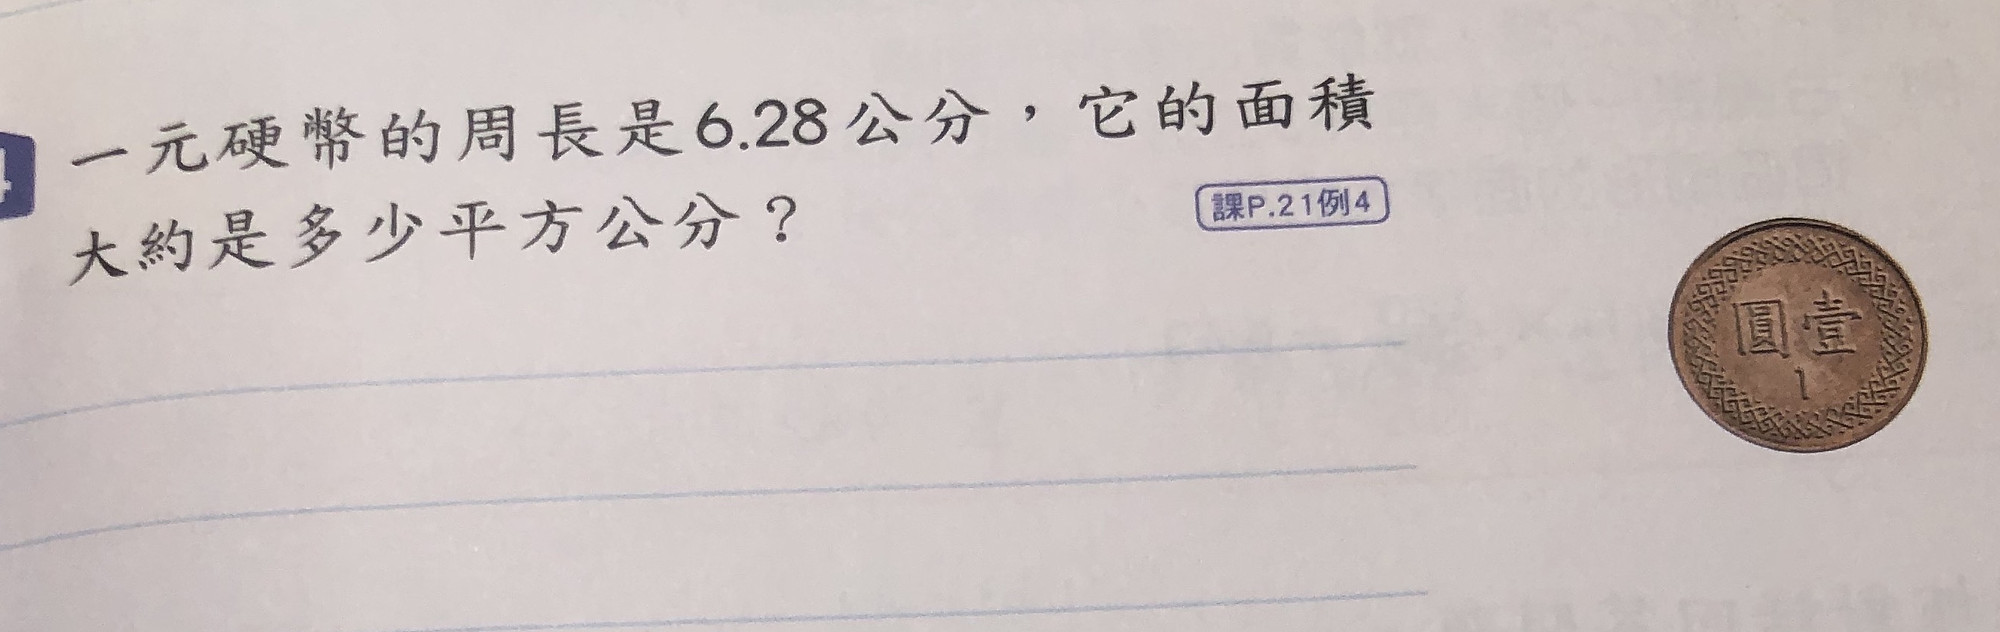 4
一元硬幣的周長是6.28公分，它的面積
大約是多少平方公分？
課P.21例4
圓壹
1